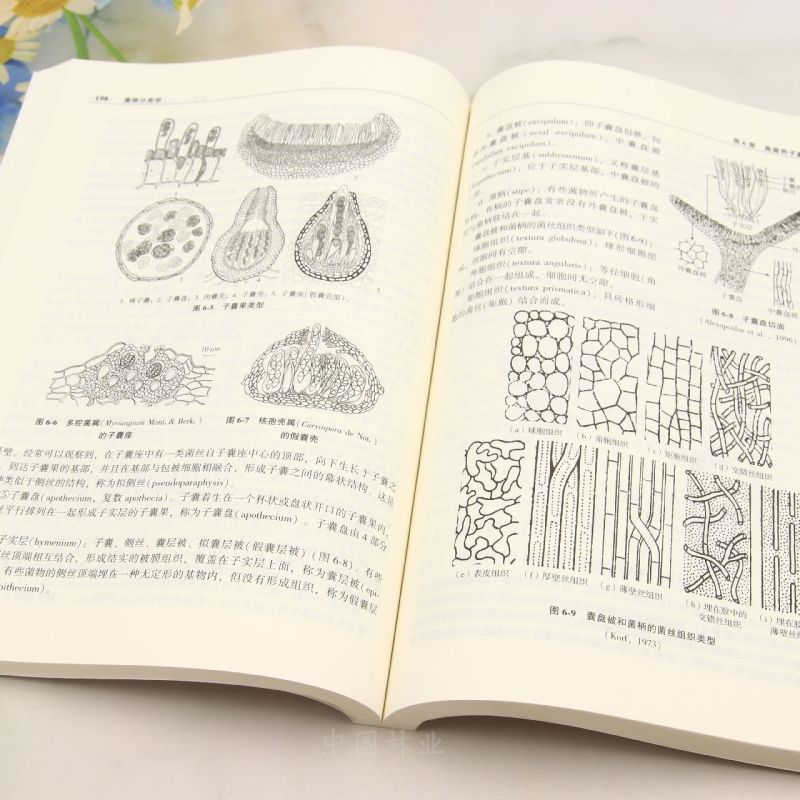 ·198· 菌物分类学
1
2
3
4
5
1. 裸子囊；2. 子囊盘；3. 闭囊壳；4. 子囊壳；5. 子囊座(假囊壳型)。
图 6-5 子囊果类型
10 μm
图 6-6 多腔菌属(Myriangium Mont. & Berk.)
的子囊座
图 6-7 核孢壳属(Caryospora de Not.)
的假囊壳
壁。经常可以观察到，在子囊座中有一类菌丝自子囊座中心的顶部，向下生长于子囊之
，到达子囊果的基部，并且在基部与包被细胞相融合，形成子囊之间的幕状结构。这是
类似于侧丝的结构，称为拟侧丝(pseudoparaphysis)。
⑤子囊盘(apothecium，复数 apothecia)。子囊着生在一个杯状或盘状开口的子囊果内，
平行排列在一起形成子实层的子囊果，称为子囊盘(apothecium)。子囊盘由4部分
子实层(hymenium)；子囊、侧丝、囊层被、拟囊层被(假囊层被)(图 6-8)。有些
丝顶端相互结合，形成结实的被膜组织，覆盖在子实层上面，称为囊层被(epi-
有些菌物的侧丝顶端埋在一种无定形的基物内，但没有形成组织，称为假囊层
pothecium)。
第 6 章 真菌界子囊
b. 囊盘被(excipulum)；即子囊盘包被，包
括外囊盘被(ectal excipulum)，中囊盘被
(medullary excipulum)。
c. 子实层基(subhymenium)，又称囊层基
(hypothecium)，位于子实层基部，中囊盘被的
上面。
d. 菌柄(stipe)；有些菌物所产生的子囊盘
有柄，有柄的子囊盘常常没有外囊盘被，子实
层与菌柄联结在一起。
囊盘被和菌柄的菌丝组织类型如下(图 6-9)；
球胞组织(textura globulosa)；球形细胞组
成，细胞间有空隙。
角胞组织(textura angularis)；等径细胞(角
胞)结合在一起组成，细胞间无空隙。
矩胞组织(textura prismatica)；具砖格形细
胞的菌丝(矩胞)结合而成。
子实层
外囊盘被
子囊盘
中囊盘被
图 6-8 子囊盘切面
(Alexopoulos et al., 1996)
(a) 球胞组织
(b) 角胞组织
(c) 矩胞组织
(d) 交错丝组织
(e) 表皮组织
(f) 厚壁丝组织
(g) 薄壁丝组织
(h) 埋在胶中的
交错丝组织
(i) 埋在胶
薄壁丝组
图 6-9 囊盘被和菌柄的菌丝组织类型
(Korf, 1973)
中国林业